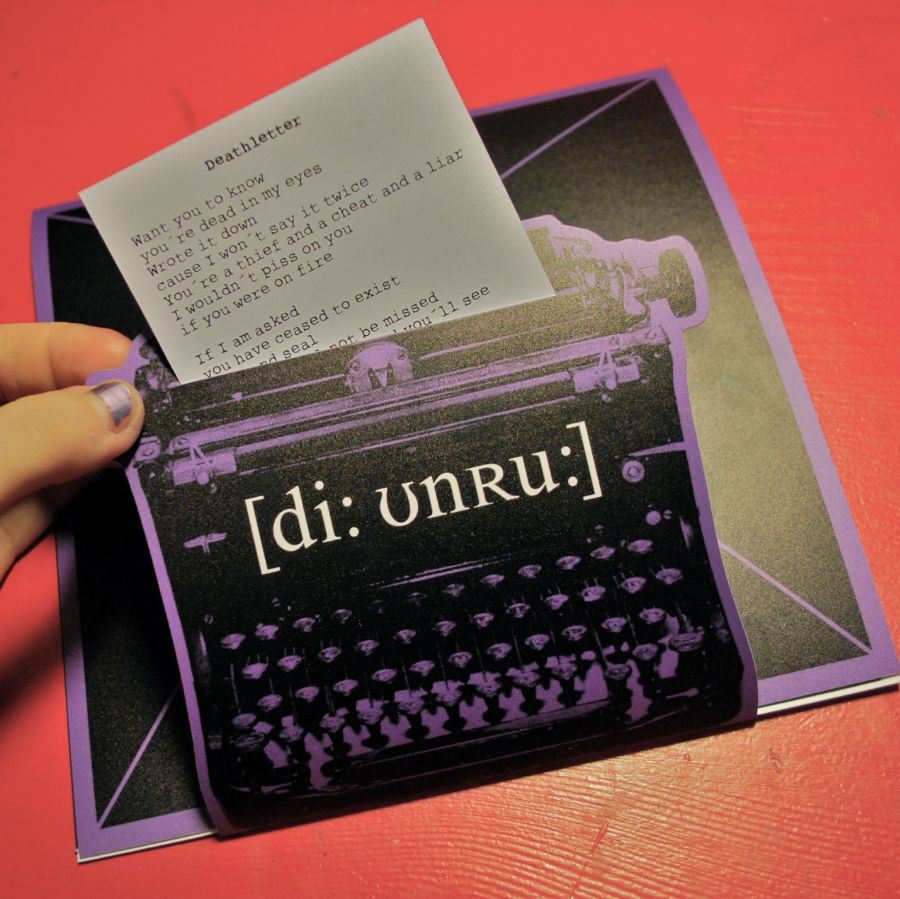 Deathletter
Want you to know
you´re dead in my eyes
Wrote it down
cause I won´t say it twice
You´re a thief and a cheat and a liar
I wouldn´t piss on you
if you were on fire
If I am asked
you have ceased to exist
seal
not be missed
you´ll see
[di: ʊnʀu:]